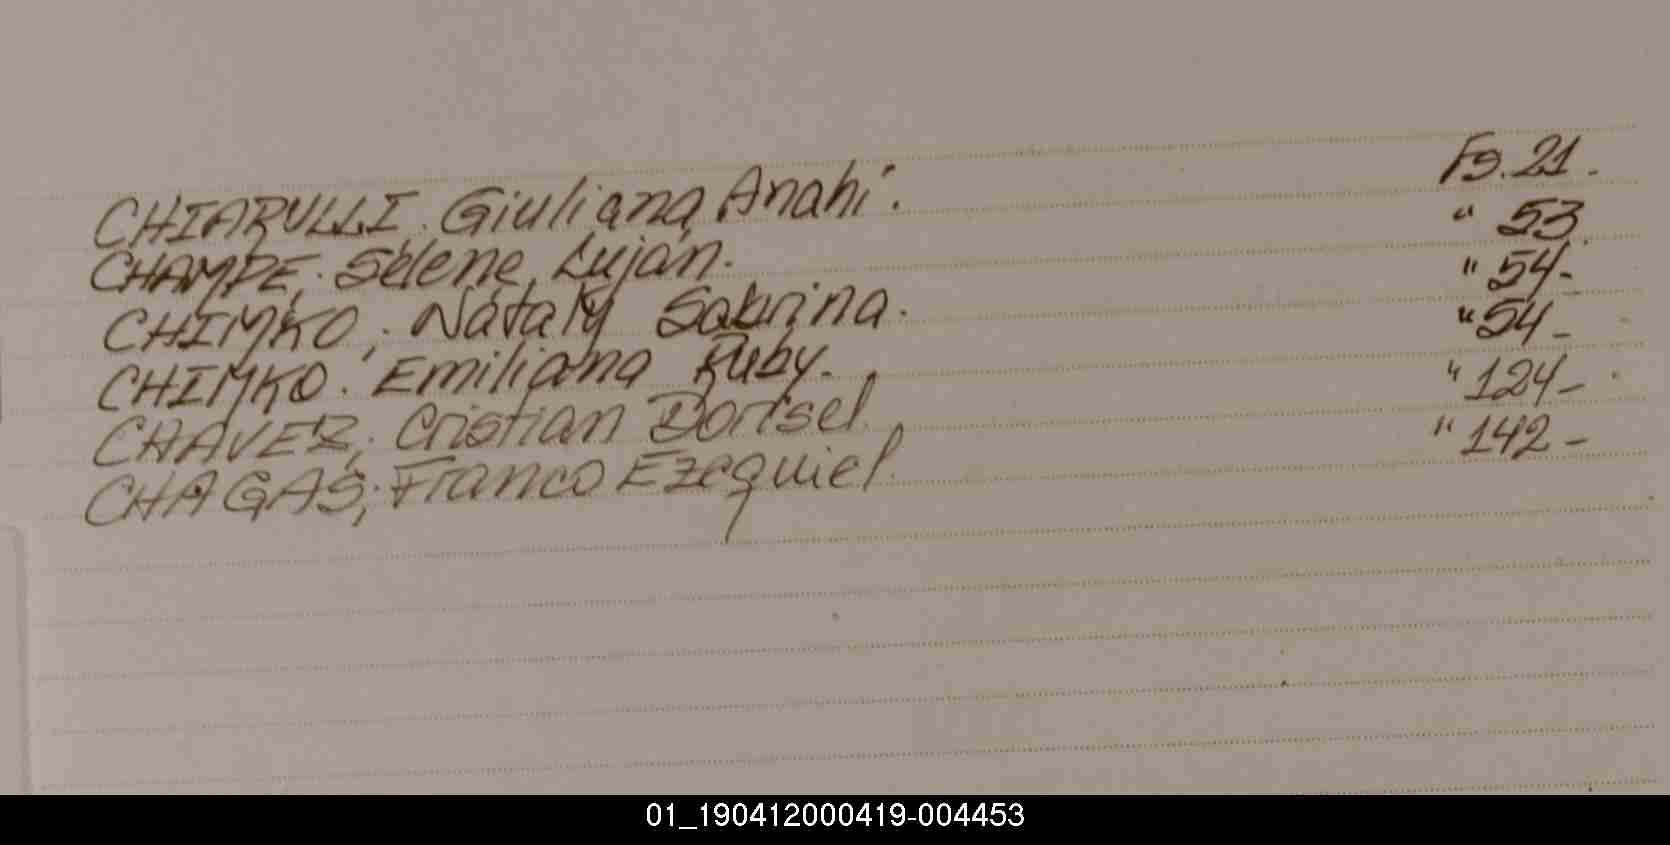 CHIARULLI. Giuliana Anahi. Fº. 21.
CHAMPE, Selene Luján. " 53
CHIMKO, Nataly Sabrina. " 54-
CHIMKO. Emiliana Ruby. " 54-
CHAVEZ, Cristian " 124-
CHAGAS, Franco Ezequiel. " 142-
01_190412000419-004453